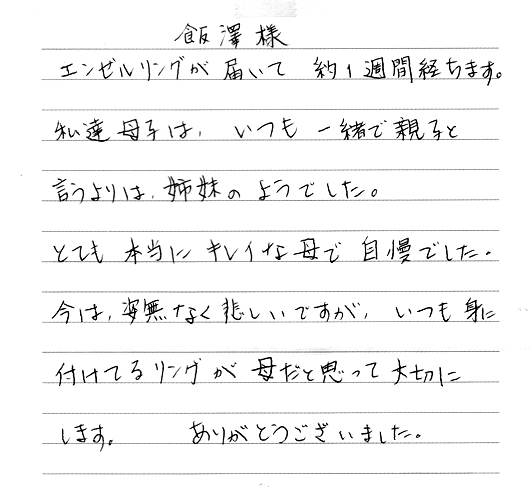 飯澤様
エンゼルリングが届いて 約1週間経ちます。
私達母子は、いつも一緒で親子と
言うよりは、姉妹のようでした。
とても本当にキレイな母で自慢でした。
今は、姿無なく悲しいですが、いつも身に
付けてるリングが母だと思って大切に
します。 ありがとうございました。